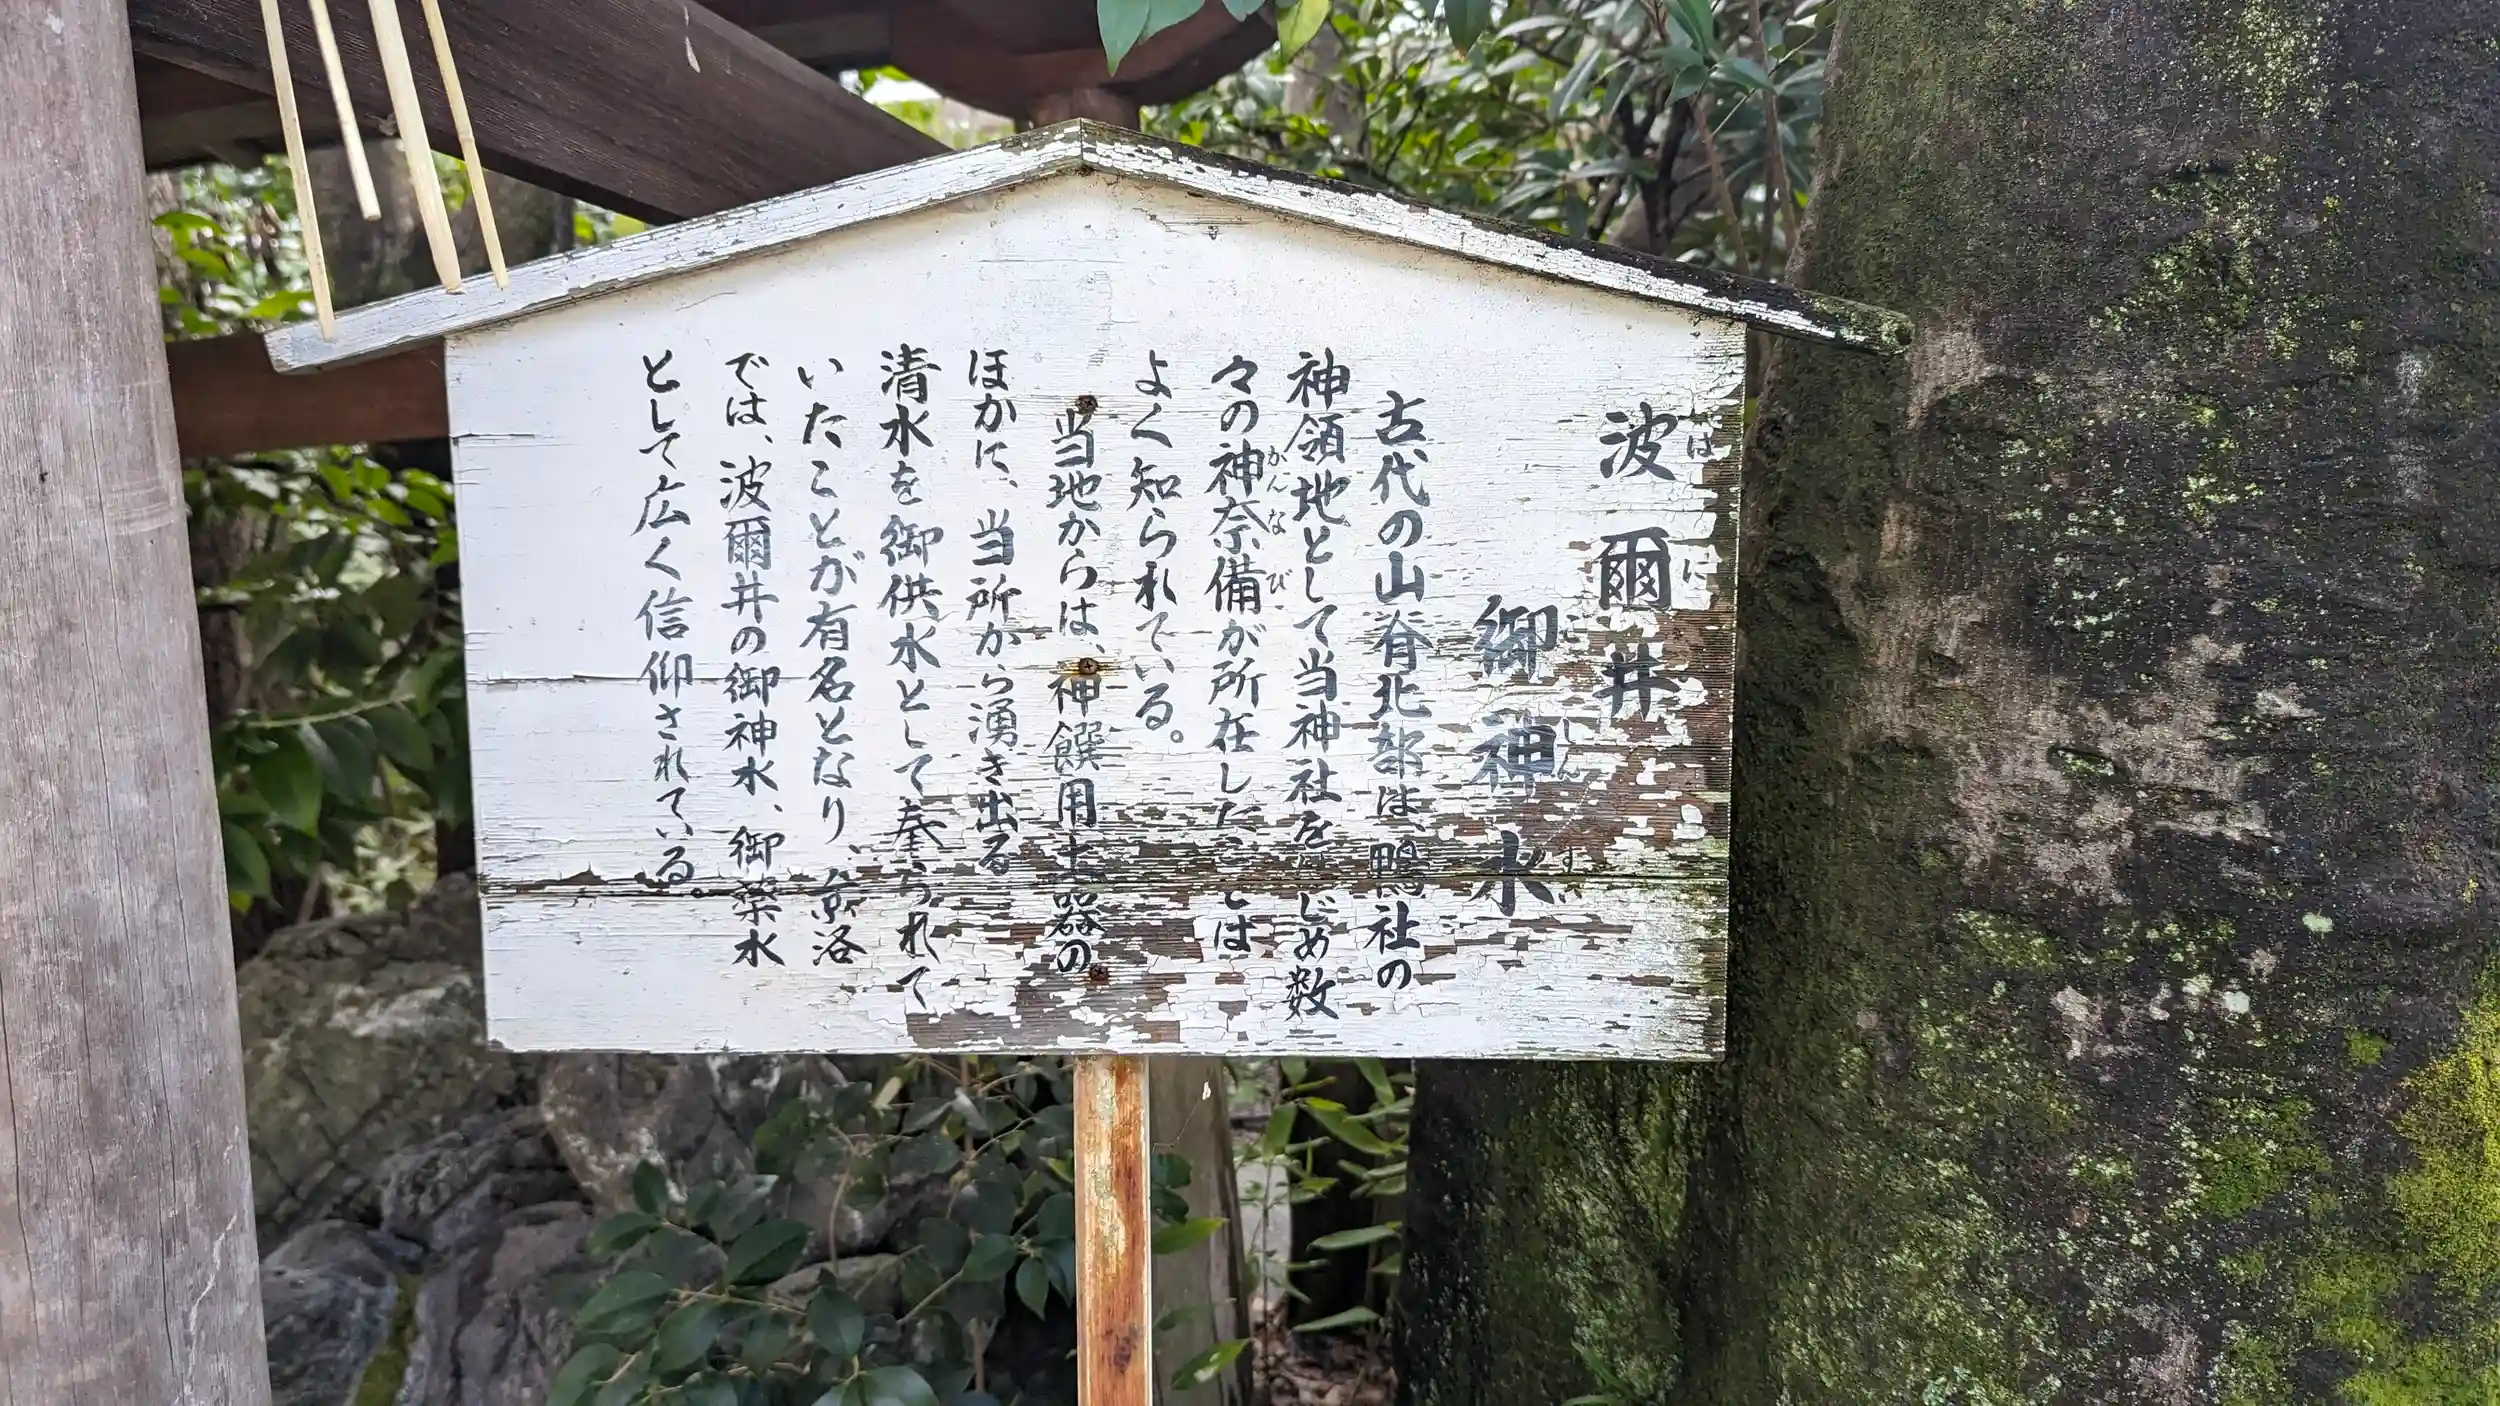 波爾井
はに
御神水
ごしんすい
古代の山脊北部は、鴨社の
神領地として当神社をはじめ数
々の神奈備が所在したことは
かんなび
よく知られている。
当地からは、神饌用土器の
ほかに、当所から湧き出る
清水を御供水として奉られて
いたことが有名となり、京洛
では、波爾井の御神水、御薬水
として広く信仰されている。